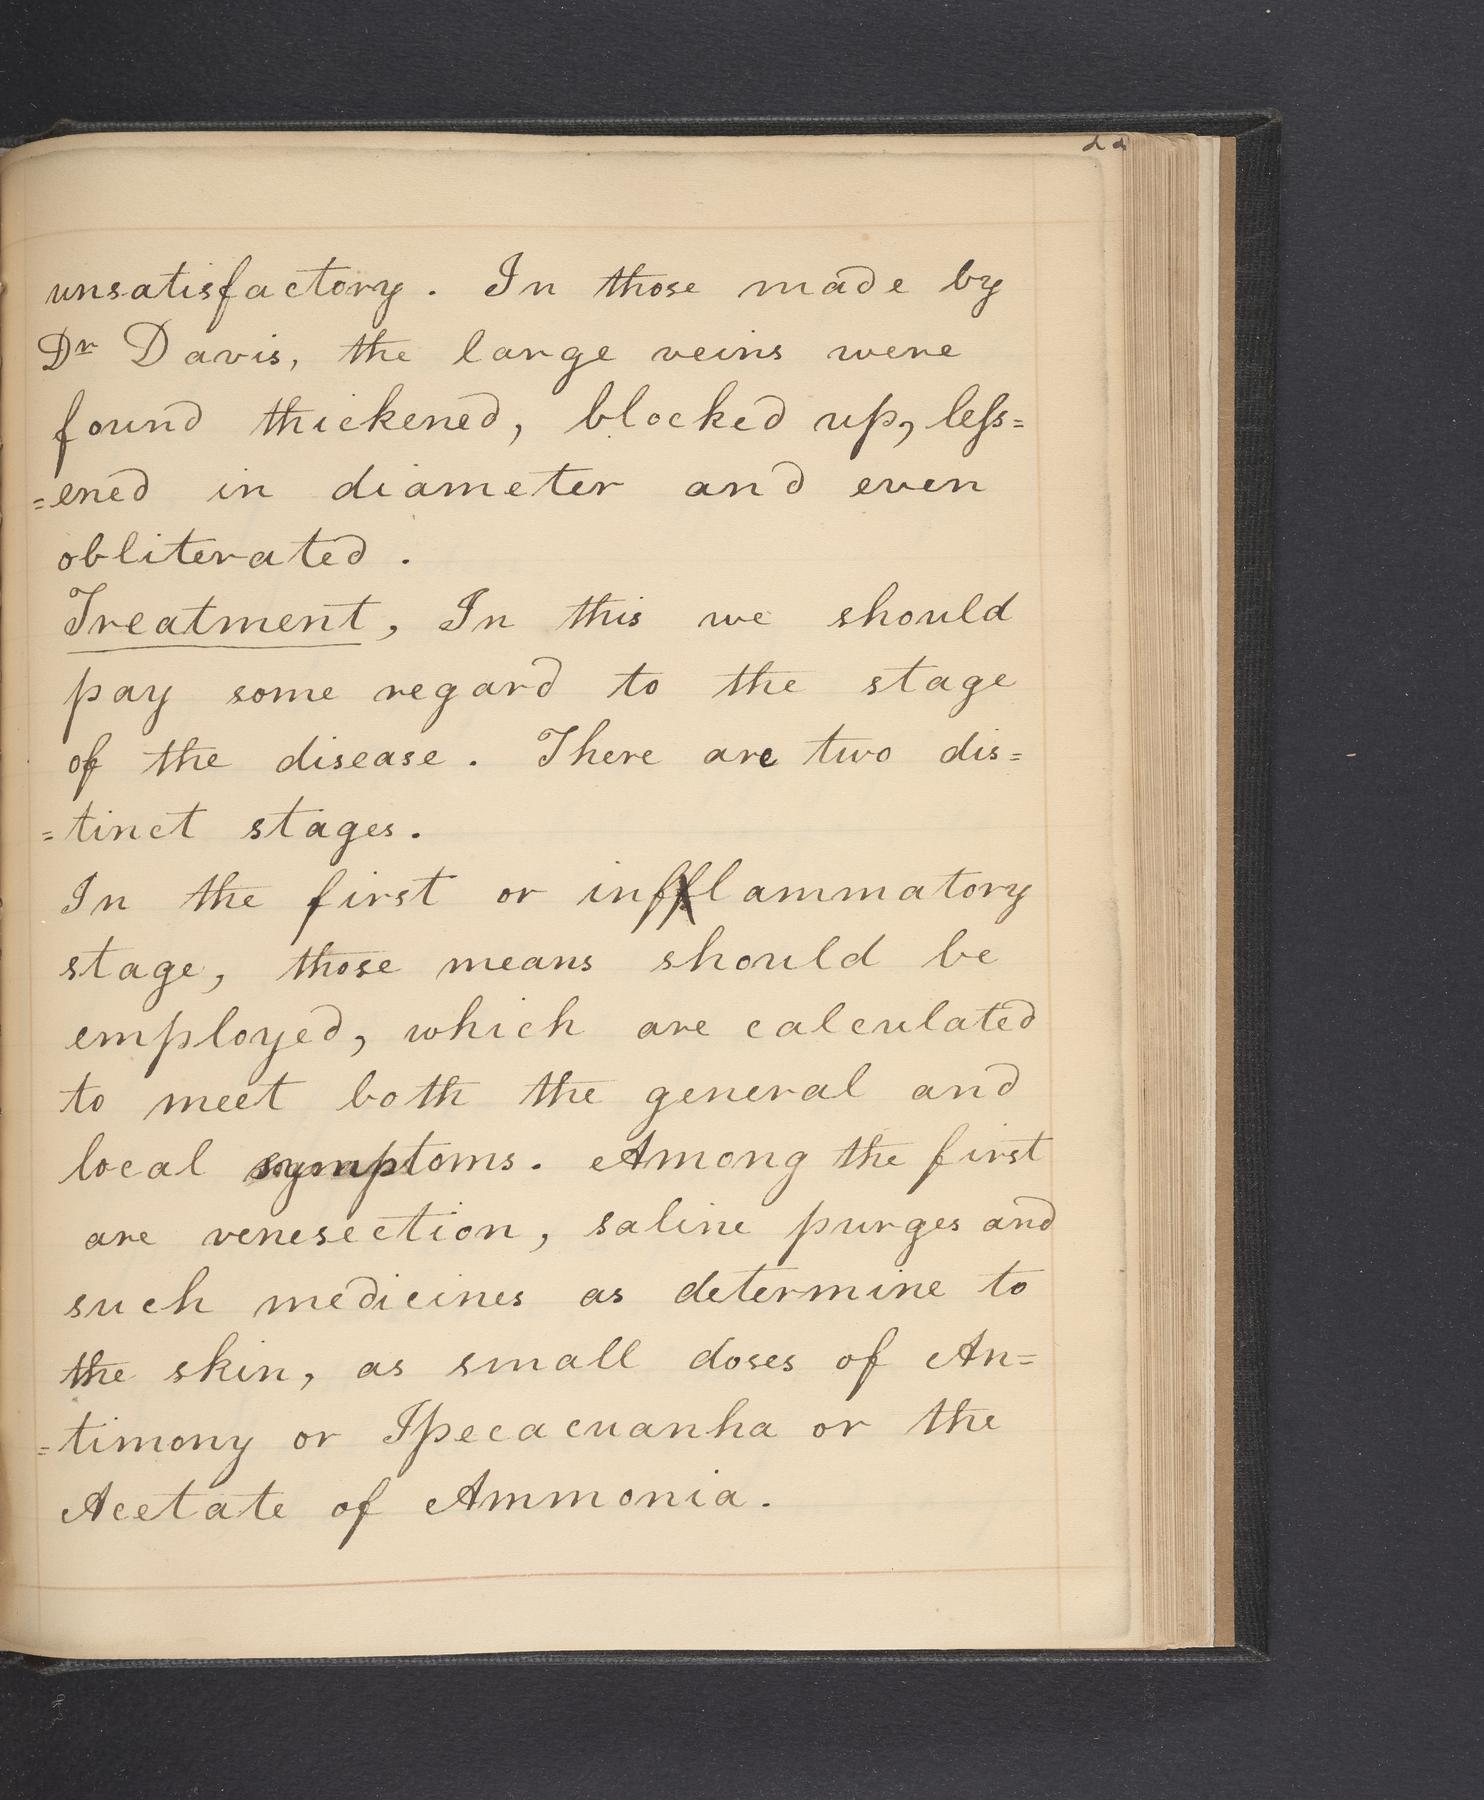 unsatisfactory. In those made by
Dr Davis, the large veins were
found thickened, blocked up, less=
=ened in diameter and even
obliterated.
Treatment, In this we should
pay some regard to the stage
of the disease. There are two dis=
=tinct stages.
In the first or inflammatory
stage, those means should be
employed, which are calculated
to meet both the general and
local symptoms. Among the first
are venesection, saline purges and
such medicines as determine to
the skin, as small doses of An=
=timony or Ipecacuanha or the
Acetate of Ammonia.